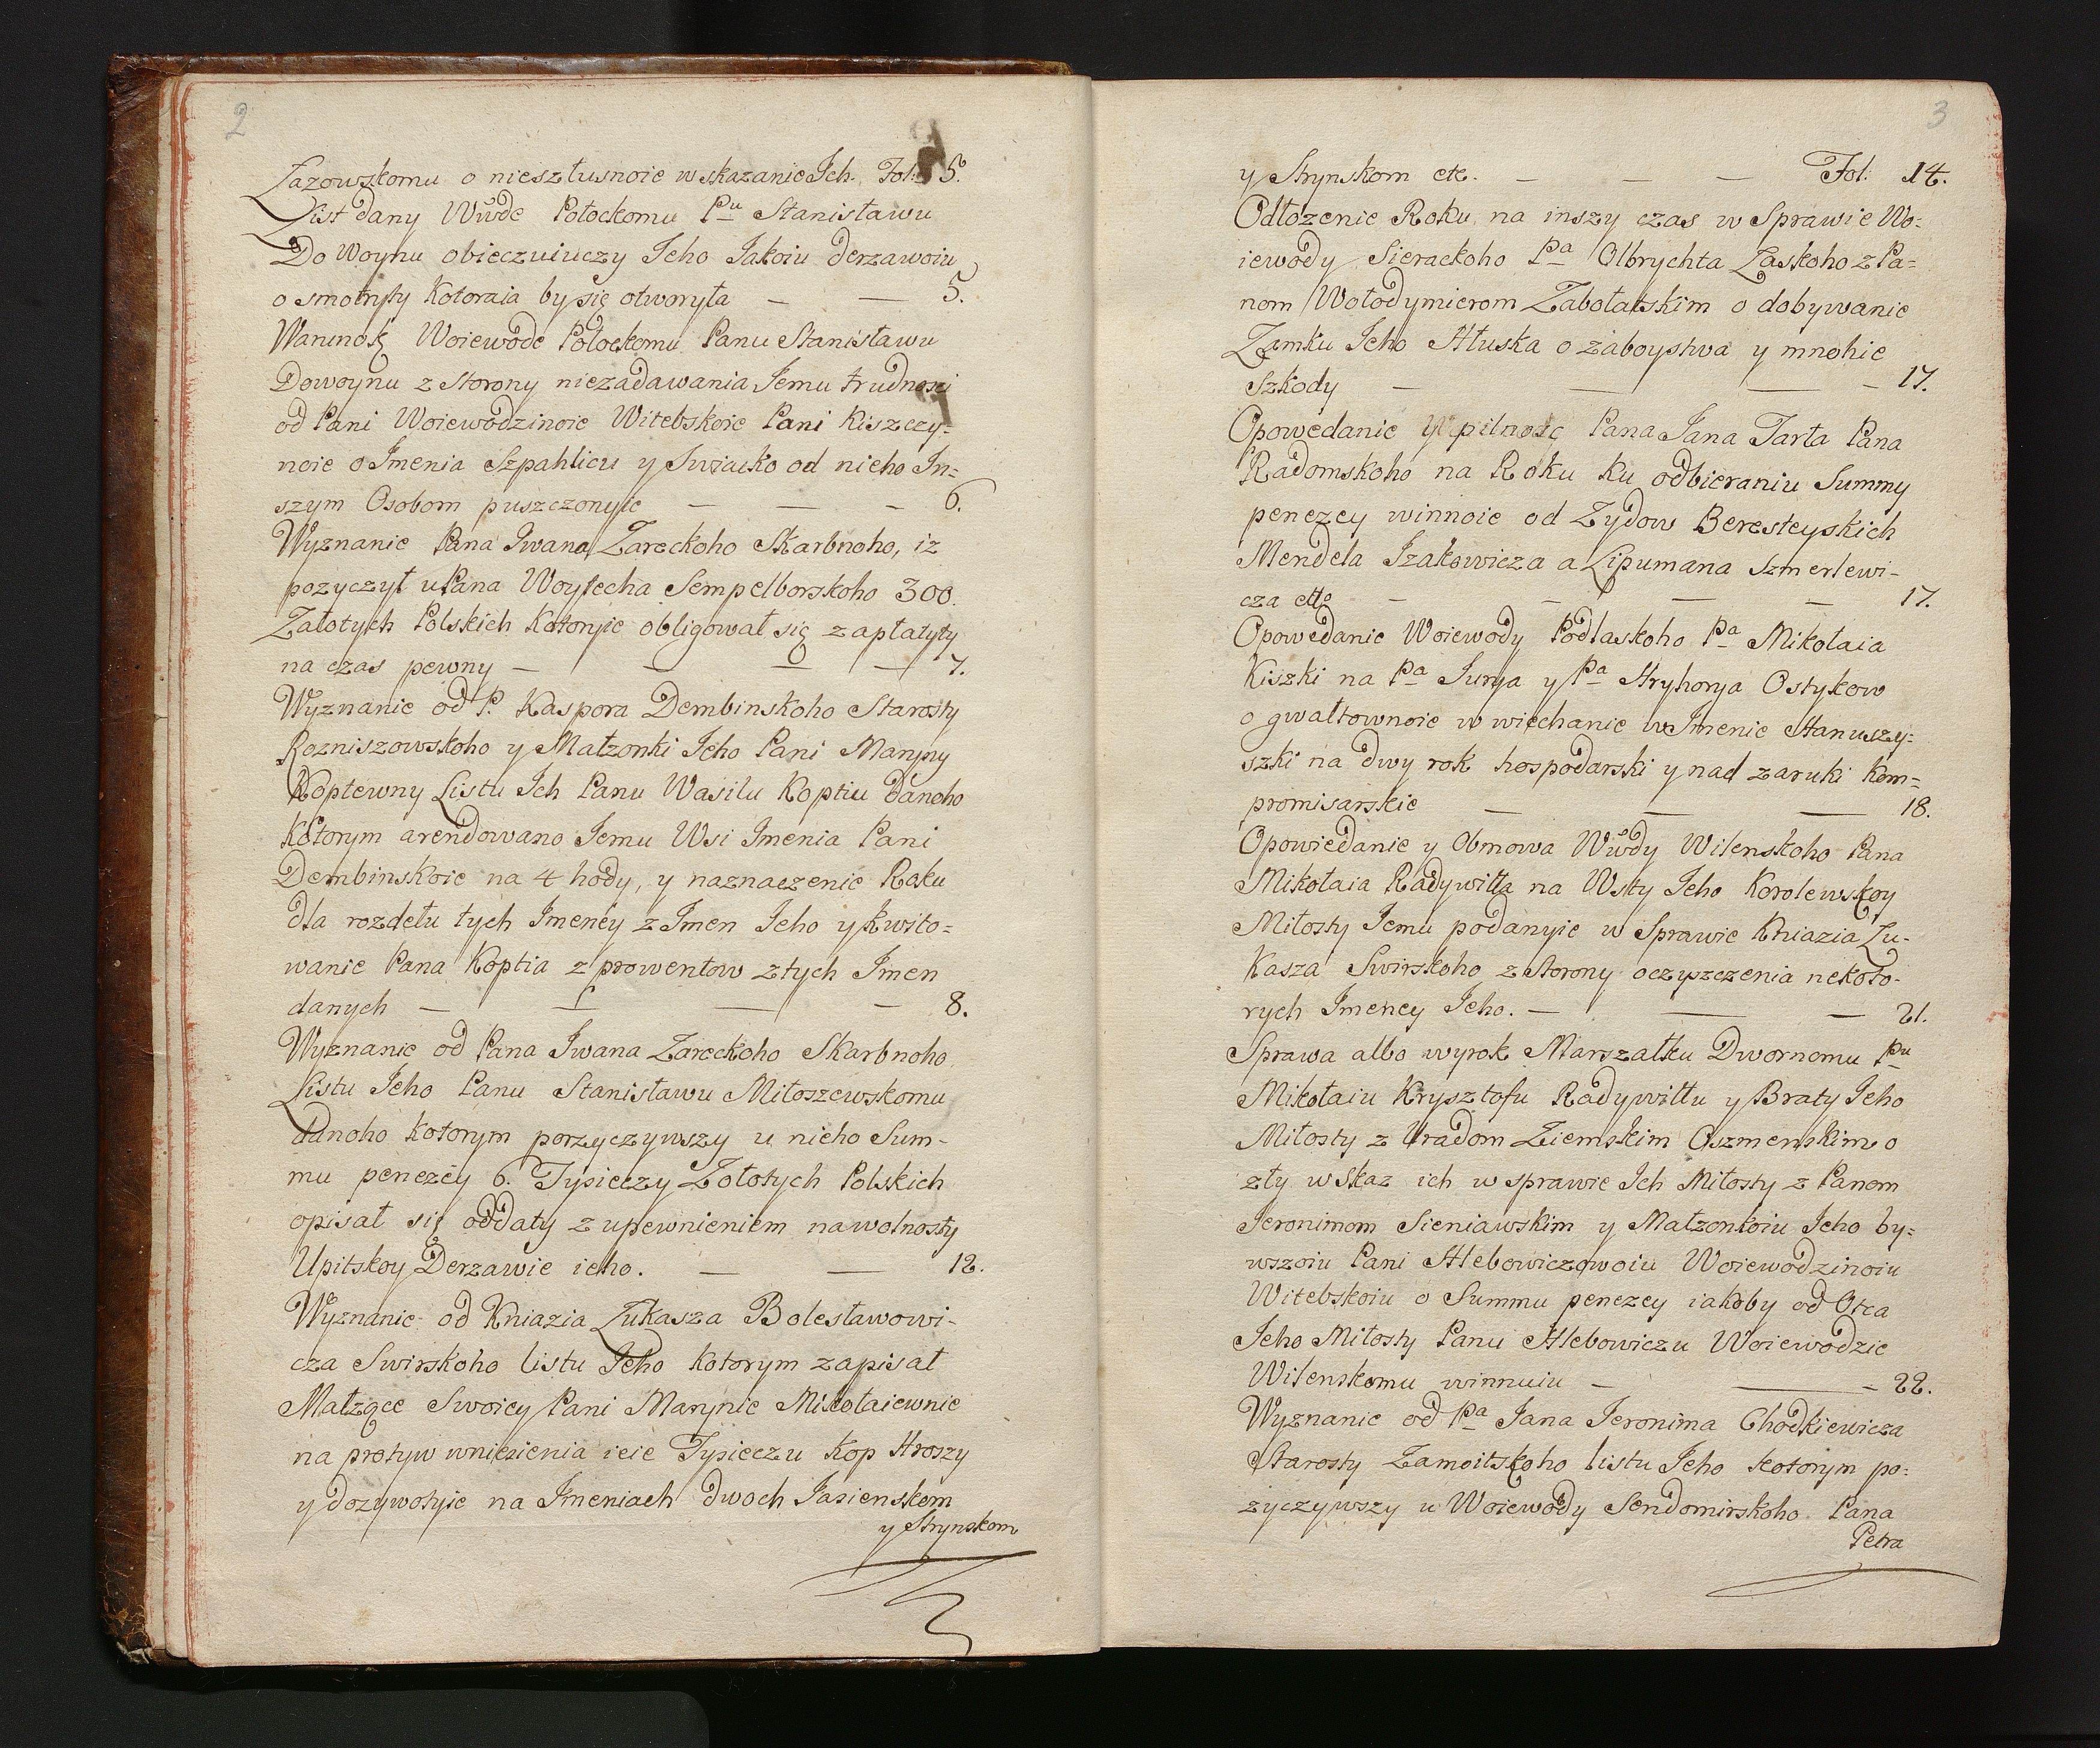 2
Łazowskomu o niesztusnoie wskazanie Jch. Fol: 5.
List dany Wwde Połockomu Pu Stanisławu
Do Woynu obiecziuczy Jeho Jakoiu derzawoiu
o smotryty Kotoraia by się otworyła — — 5.
Warunok Woiewode Połockomu Panu Stanisławu
Dowoynu z storony niezadawania Jemu trudnosci
od Pani Woiewodzinoie Witebskoie Pani Kiszczy-
noie o Jmenia Szpahlicu y Swiacko od nieho In=
szym Osobom puszczonyie — — - 6.
Wyznanie Pana Jwana Zareckoho Skarbnoho, iz
pozyczył u Pana Woytecha Sempelborskoho 300.
Załotych Polskich Kotoryie obligował się zapłatyty
na czas pewny — — — — 7.
Wyznanie od P. Kaspora Dembinskoho Starosty
Rozniszowskoho y Małzonki Jeho Pani Maryny
Koptewny Listu Jch Panu Wasilu Koptiu danoho
Kotorym arendowano Jemu Wsi Jmenia Pani
Dembinskoie na 4 hody, y naznaczenie Roku
dla rozdełu tych Jmeney z Jmen Jeho y kwito=
wanie Pana Koptia z prowentow z tych Jmen
danych — — — - 8.
Wyznanie od Pana Jwana Zareckoho Skarbnoho
Listu Jeho Panu Stanisławu Miłoszewskomu
danoho kotorym porzyczywszy u nieho Sum-
mu penezey 6. Tysieczy Zołotych Polskich
opisał się oddaty z upewnieniem na wolnosty
Upitskoy Derzawie ieho. — — 12.
Wyznanie od Kniazia Łukasza Bolesławowi-
cza Swirskoho listu Jeho kotorym zapisał
Małzące Swoiey Pani Marynie Mikołaiewnie
na protyw wniesienia ieie Tysieczu Kop Hroszy
y dozywotyie na Jmeniach dwoch Jasienskom
y Strynskom
3
y Strynskom etc. — — — Fol: 14.
Odłozenie Roku na inszy czas w Sprawie Wo:
iewody Sierackoho Pa Olbrychta Łaskoho z Pa=
nom Wołodymierom Zabołatskim o dobywanie
Zamku Jeho Hłuska o zaboystwa y mnohie
Szkody — — — - 17.
Opowedanie y pilnosc Pana Jana Tarła Pana
Radomskoho na Roku ku odbieraniu Summy
penezey winnoie od Zydow Beresteyskich
Mendela Jzakowicza a Lipumana Szmerlewi-
cza etto — — — — 17.
Opowedanie Woiewody Podlaskoho Pa Mikołaia
Kiszki na Pa Jurya y Pa Hryhorya Ostykow
o gwałtownoie w wiechanie w Jmenie Hanuszy:
szki na dwy rok hospodarski y nad zaruki kom=
promisarskie — — — 18.
Opowiedanie y Obmowa Wwdy Wilenskoho Pana
Mikołaia Radywiłła na Wsty Jeho Korolewskoy
Miłosty Jemu podanyie w Sprawie Kniazia Łu-
kasza Swirskoho z storony oczyszczenia nekoto-
rych Jmeney Jeho. — — — 21.
Sprawa albo wyrok Marszałku Dwornomu Pu
Mikołaiu Krysztofu Radywiłłu y Braty Jeho
Miłosty z Uradom Ziemskim Oszmenskim o
zły wskaz ich w sprawie Jch Miłosty z Panom
Jeronimom Sieniawskim y Małzonkoiu Jeho by=
wszoiu Pani Hlebowiczowoiu Woiewodzinoiu
Witebskoiu o Summu penezey iakoby od Otca
Jeho Miłosty Panu Hlebowiczu Woiewodzie
Wilenskomu winnuiu — — - 22.
Wyznanie od Pa Jana Jeronima Chodkiewicza
Starosty Zamoitskoho listu Jeho kotorym po:
zyczywszy u Woiewody Sendomirskoho Pana
Petra